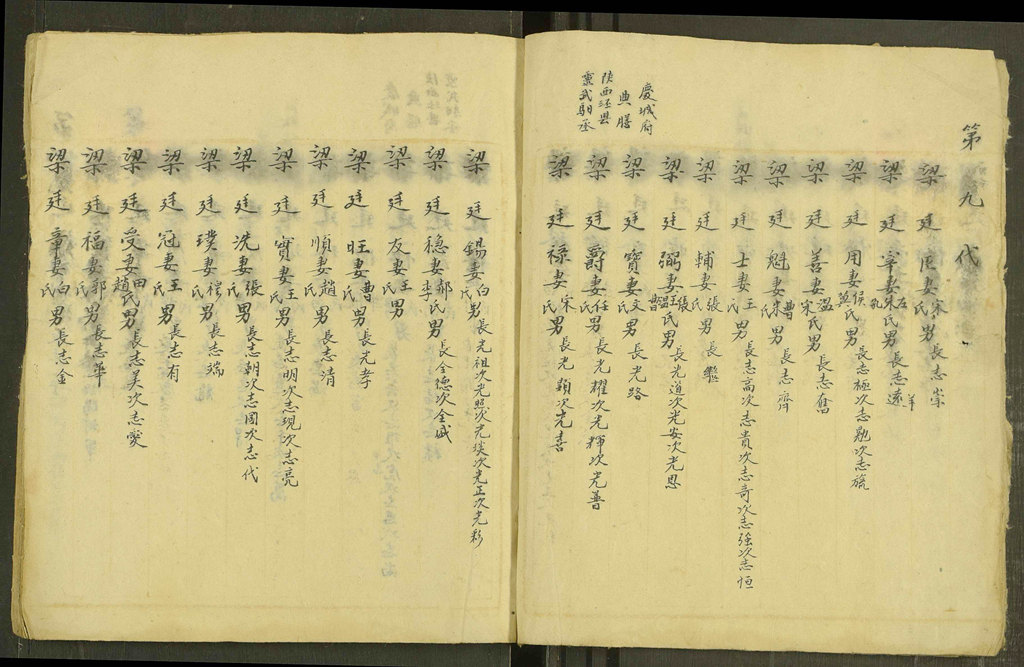 第九代
梁廷臣妻宋氏男長志崇
梁廷宰妻左朱孔氏男長志遠
梁廷用妻侯莫氏男長志極次志勉次志旒
梁廷善妻溫宋氏男長志奮
梁廷魁妻曹朱氏男長志齊
梁廷士妻王氏男長志高次志貴次志奇次志強次志恒
梁廷輔妻張氏男長
梁廷弼妻王氏男長光道次光安次光恩
慶城府
典膳
梁廷寶妻文氏男長光路
陕西涇县
靈武馹丞
梁廷爵妻任氏男長光耀次光輝次光普
梁廷祿妻宋氏男長光顯次光喜
梁廷錫妻白氏男長光祖次光照次光燦次光正次光彩
梁廷穩妻郝李氏男長全德次全威
梁廷友妻王氏男
梁廷旺妻曹氏男長光孝
梁廷順妻趙氏男長志清
梁廷實妻王氏男長志明次志現次志亮
梁廷洗妻張氏男長志朝次志國次志代
梁廷璞妻程氏男長志瑞
梁廷冠妻王氏男長志有
梁廷受妻田趙氏男長志美次志愛
梁廷福妻郭氏男長志華
梁廷章妻白氏男長志金